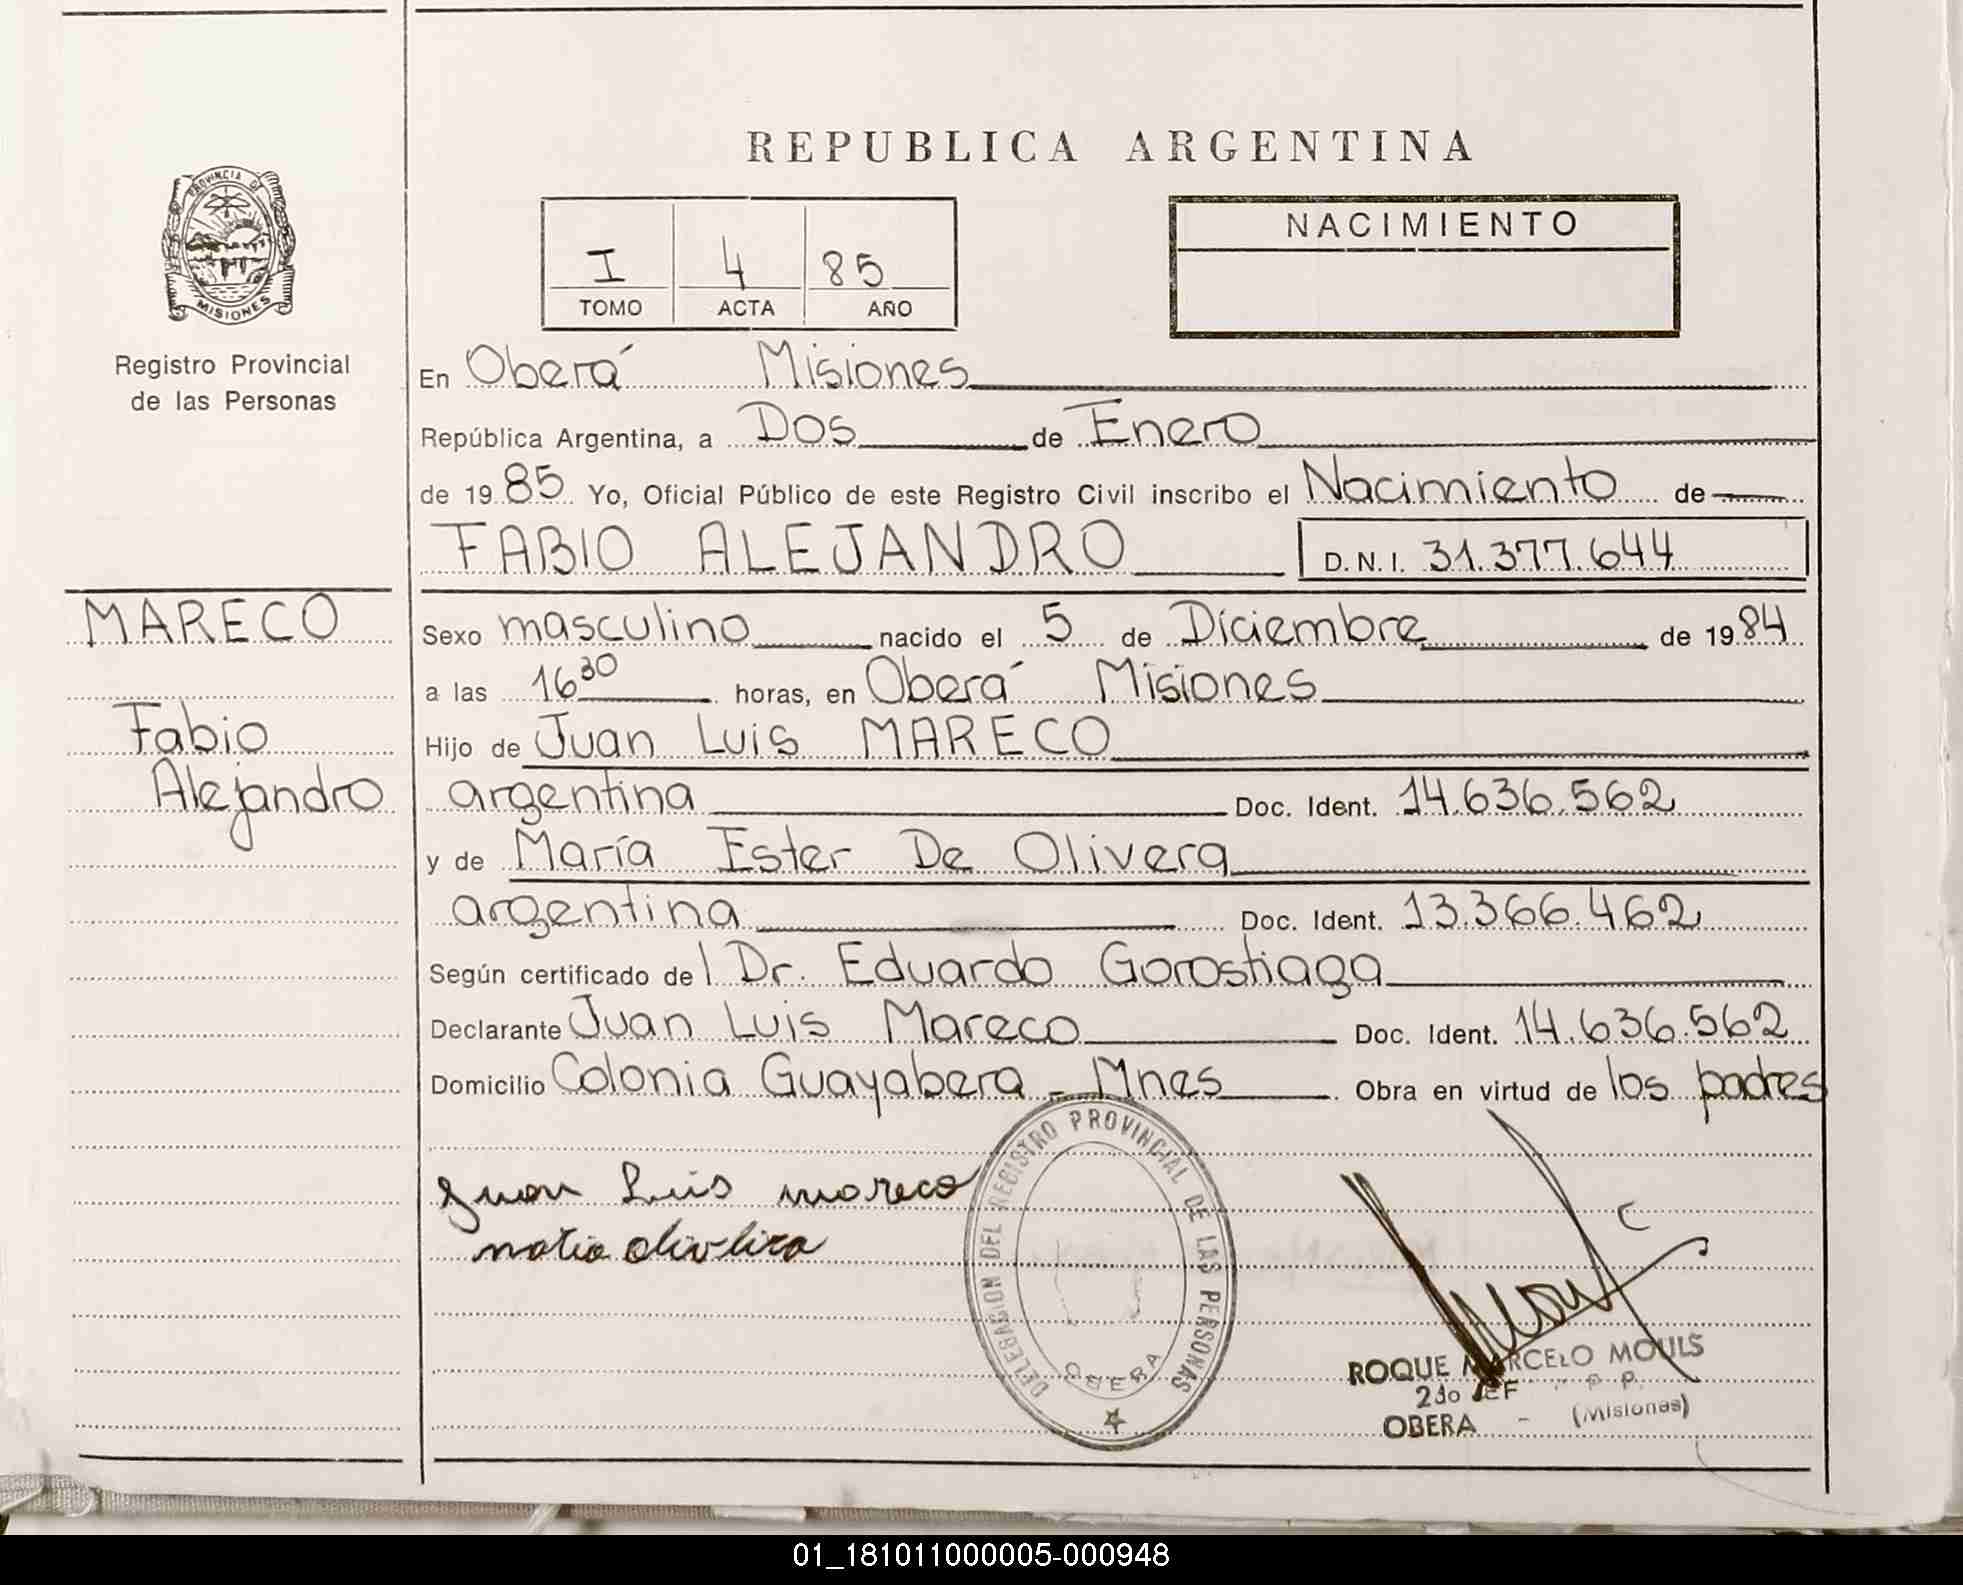 REPUBLICA ARGENTINA
PROVINCIA DE
MISIONES
Registro Provincial
de las Personas
I 4 85
TOMO ACTA AÑO
NACIMIENTO
En Oberá Misiones
República Argentina, a Dos de Enero
de 1985 Yo, Oficial Público de este Registro Civil inscribo el Nacimiento de
FABIO ALEJANDRO D.N.I. 31.377.644
MARECO
Fabio
Alejandro
Sexo masculino nacido el 5 de Diciembre de 1984
a las 16 30 horas, en Oberá Misiones
Hijo de Juan Luis MARECO
argentina Doc. Ident. 14.636.562
y de María Ester De Olivera
argentina Doc. Ident. 13.366.462
Según certificado del Dr. Eduardo Gorostiaga
Declarante Juan Luis Mareco Doc. Ident. 14.636.562
Domicilio Colonia Guayabera - Mnes Obra en virtud de los padres
Juan Luis mareco
DELEGACION DEL REGISTRO PROVINCIAL DE LAS PERSONAS
OBERA
ROQUE MARCELO MOULS
2do JEF
OBERA - (Misiones)
01_181011000005-000948